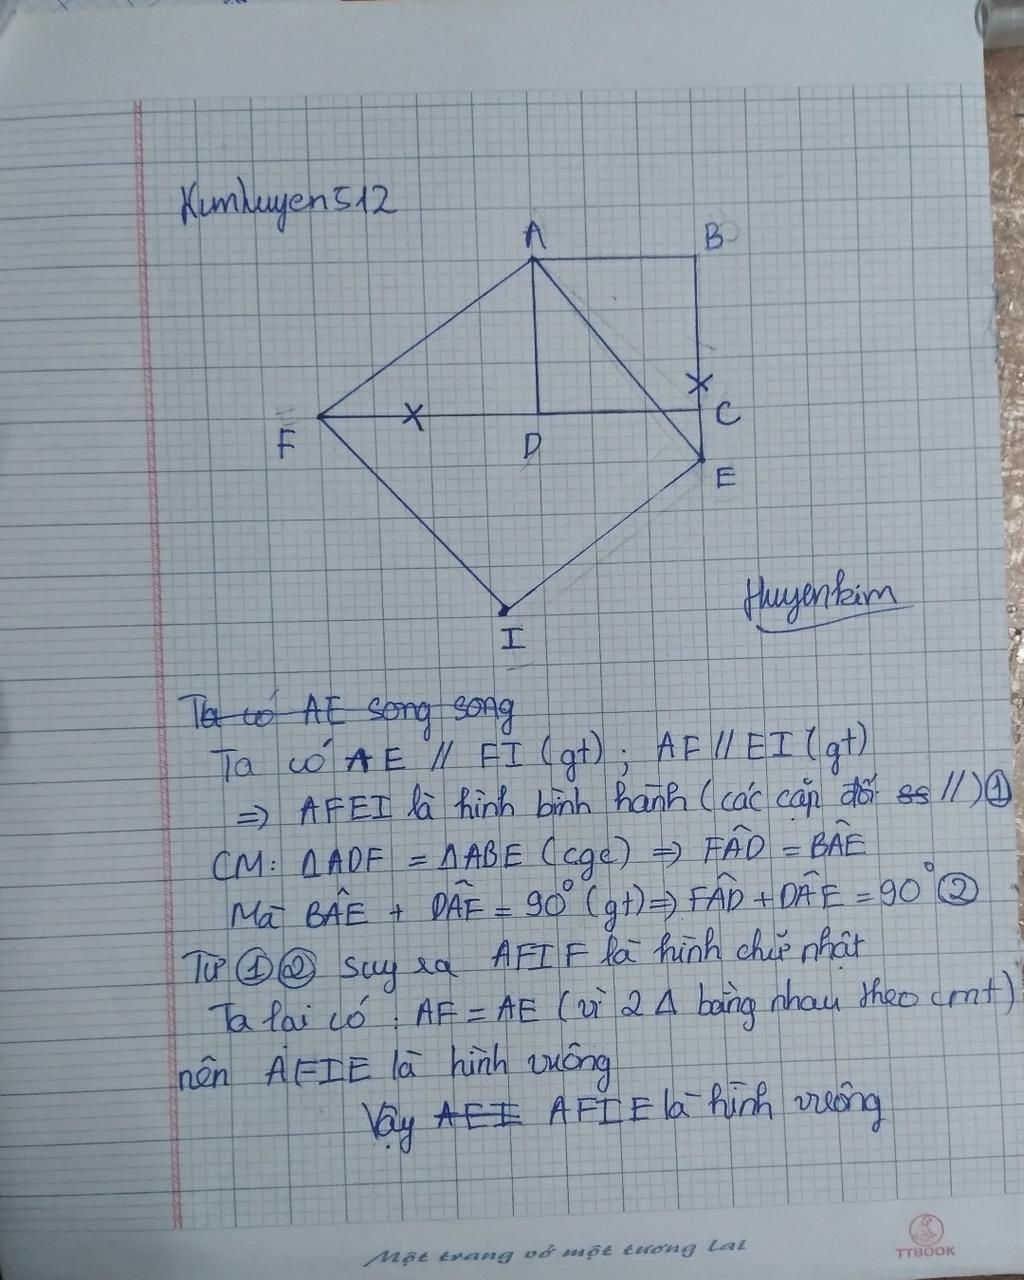 Kimhuyen512
A
B
F
D
C
E
Huyenkim
I
Ta có AE song song
Ta có AE // FI (gt) ; AF // EI (gt)
=> AFEI là hình bình hành (các cặp đối ss //) ①
CM: ΔADF = ΔABE (cgc) => FÂD = BÂE
Mà BÂE + DÂE = 90° (gt) => FÂD + DÂE = 90° ②
Từ ① ② suy ra AFIF là hình chữ nhật
Ta lại có : AF = AE (vì 2 Δ bằng nhau theo cmt)
nên AFIE là hình vuông
Vậy AEI AFIE là hình vuông
Một trang vở một tương lai
TTBOOK